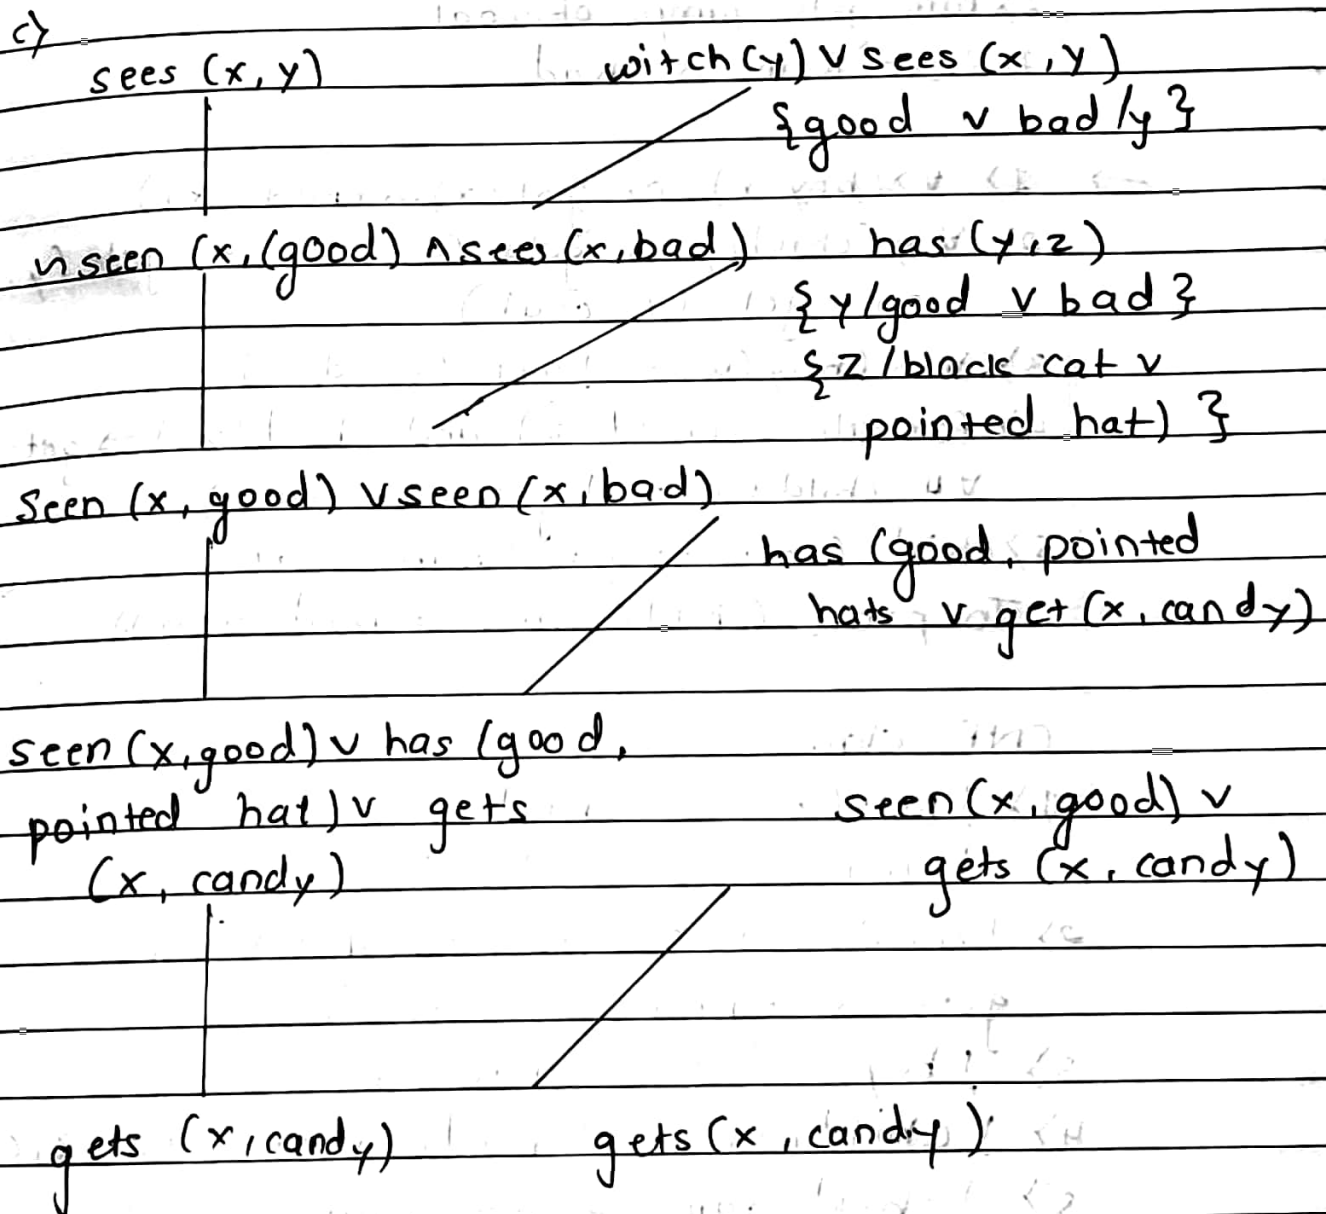 c)
sees (x, y)    witch(y) V sees (x, y)
{good v bad/y}
seen (x, (good) ∧ sees (x, bad)    has (y, z)
{y/good v bad}
{z/black cat v
pointed hat) }
Seen (x, good) V seen (x, bad)
has (good, pointed
hats v get (x, candy)
seen (x, good) v has (good,
pointed hat) v gets    seen (x, good) v
(x, candy)    gets (x, candy)
gets (x, candy)    gets (x, candy)